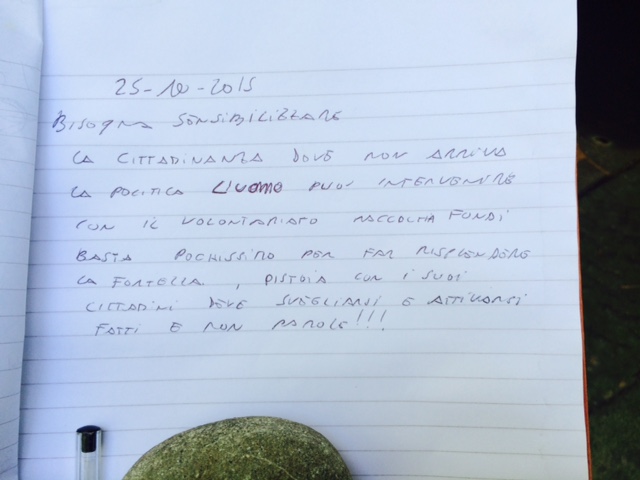 25-10-2015
BISOGNA SENSIBILIZZARE
LA CITTADINANZA DOVE NON ARRIVA
LA POLITICA L'UOMO PUOI INTERVENIRE
CON IL VOLONTARIATO RACCOLTA FUNDI
BASTA POCHISSIMO PER FAR RISPLENDERE
LA FORTEZZA, PISTOIA CON I SUOI
CITTADINI DEVE SVEGLIARSI E ATTIVARSI
FATTI E NON PAROLE!!!